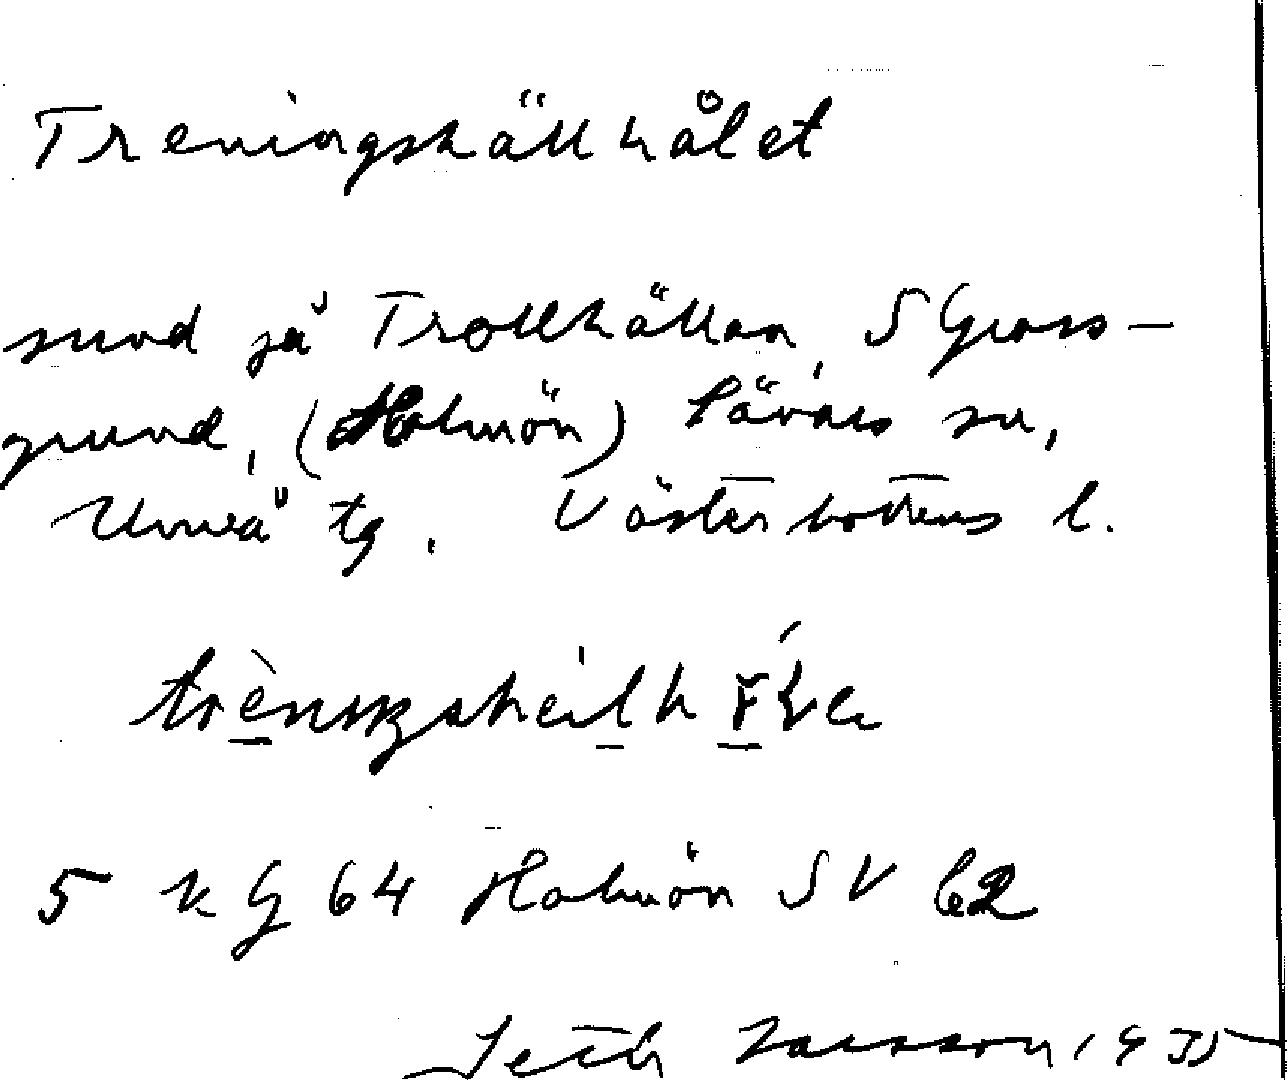 Treningskällhålet
sund på Trollhällan, S Grass-
grund, (Holmön) Sävars sn,
Umeå tg. Västerbottens l.
5 k G 64 Holmön SV
Seth Larsson 1935